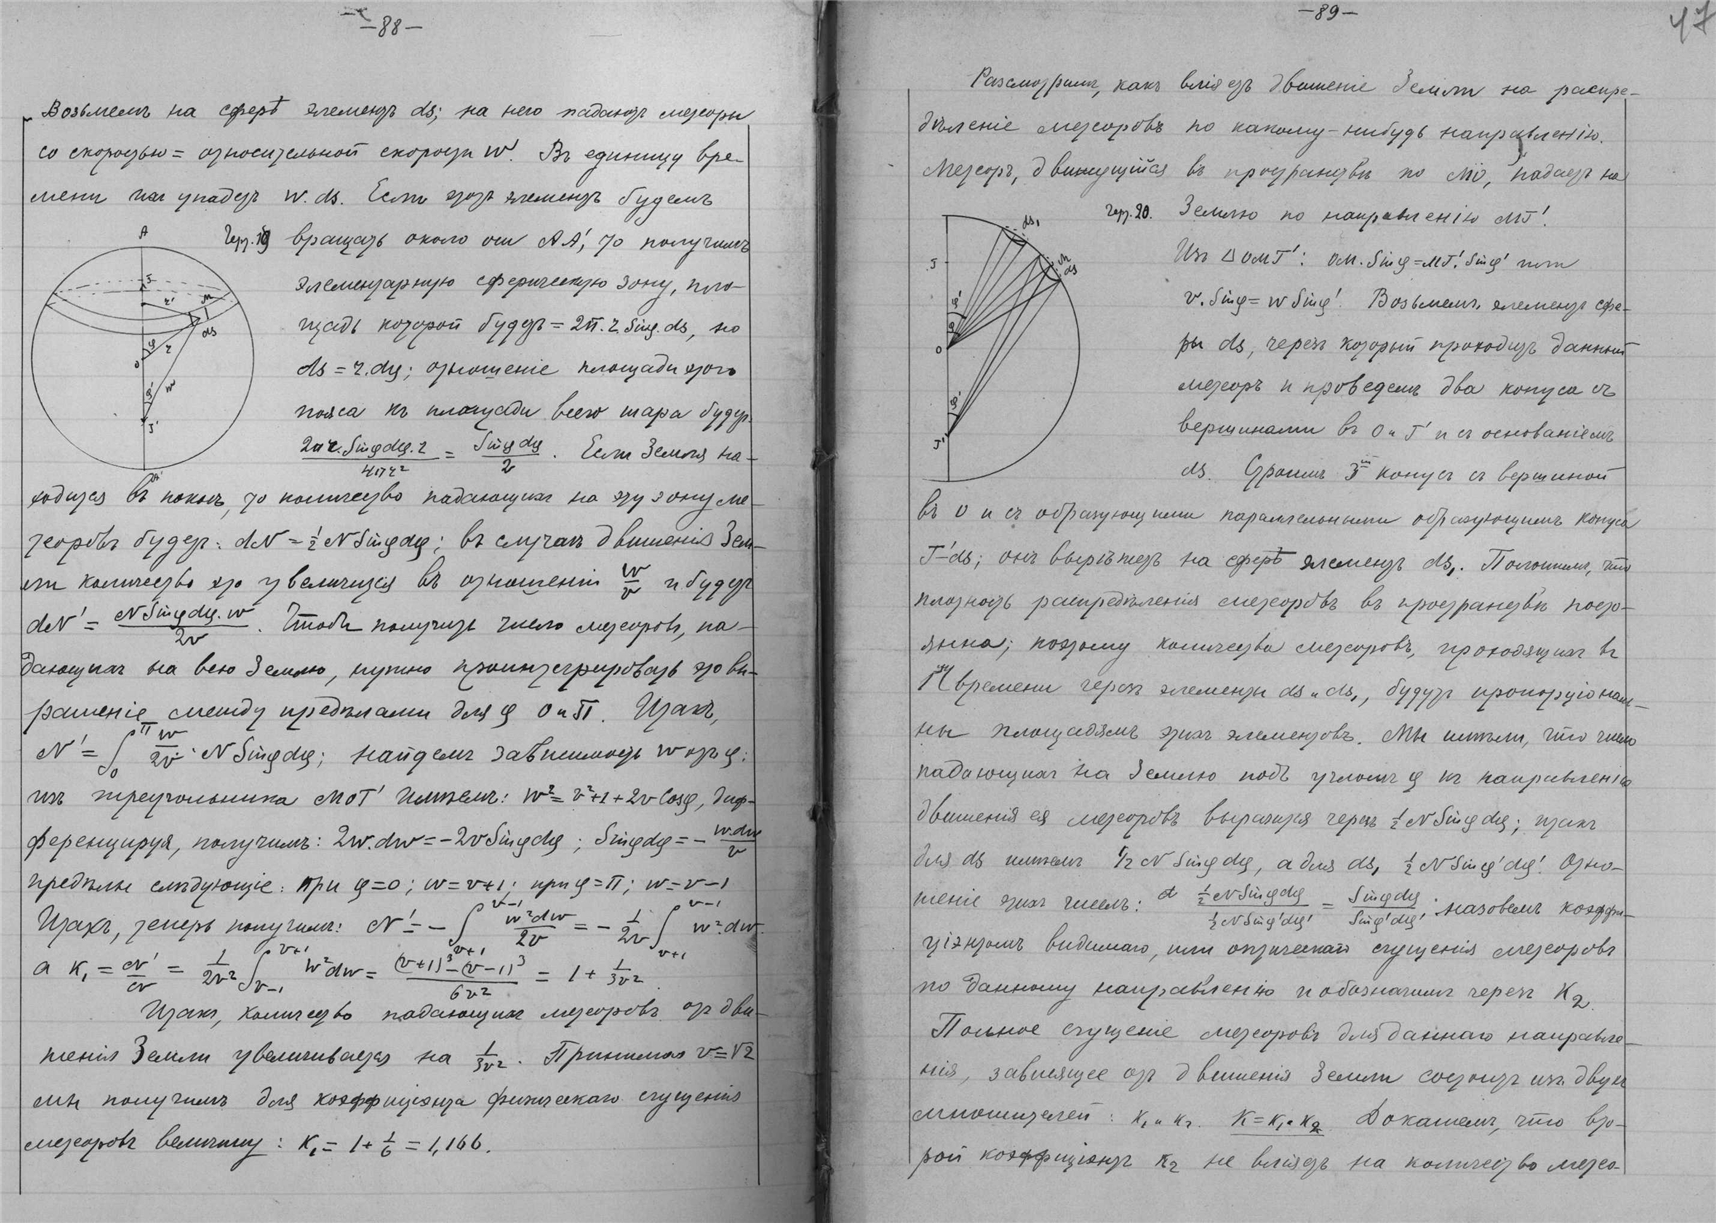 —88—
Возьмемъ на сферѣ элементъ ds; на него падаютъ метеоры
со скоростью = относительной скорости w. Въ единицу вре-
мени ихъ упадетъ w.ds. Если этотъ элементъ будемъ
Черт. 19 вращать около оси AA', то получимъ
элементарную сферическую зону, пло-
щадь которой будетъ = 2π.r.Sinφ.ds, но
ds = r.dφ; отношеніе площади этого
пояса къ площади всего шара будетъ
2πr.Sinφdφ.r / 4πr² = Sinφdφ / 2. Если Земля на-
ходится въ покоѣ, то количество падающихъ на эту зону ме-
теоровъ будетъ: dN = ½ N Sinφdφ; въ случаѣ движенія Зем-
ли количество это увеличится въ отношеніи w/v и будетъ
dN' = N Sinφdφ.w / 2v. Чтобы получить число метеоровъ, па-
дающихъ на всю Землю, нужно проинтегрировать это вы-
раженіе между предѣлами для φ 0 и π. Итакъ,
N' = ∫₀^π w/2v · N Sinφdφ; найдемъ зависимость w отъ φ:
изъ треугольника MOT' имѣемъ: w² = v²+1+2v Cosφ, диф-
ференцируя, получимъ: 2w.dw = −2v Sinφdφ; Sinφdφ = − w.dw / v
предѣлы слѣдующіе: при φ=0; w=v+1; при φ=π; w=v−1
Итакъ, теперь получимъ: N' = −∫_{v+1}^{v−1} w²dw / 2v = − 1/2v ∫_{v+1}^{v−1} w².dw
а K₁ = N'/N = 1/2v² ∫_{v−1}^{v+1} w²dw = (v+1)³−(v−1)³ / 6v² = 1 + 1/3v²
Итакъ, количество падающихъ метеоровъ отъ дви-
женія Земли увеличивается на 1/3v². Принимая v=√2
мы получимъ для коэффиціэнта физическаго сгущенія
метеоровъ величину: K₁ = 1 + 1/6 = 1,166.
A
T
r'
M
ds
φ
r
O
w
φ'
T'
A'
—89—
47
Разсмотримъ, какъ вліяетъ движеніе Земли на распре-
дѣленіе метеоровъ по какому-нибудь направленію.
Метеоръ, движущійся въ пространствѣ по MO, падаетъ на
Черт. 20. Землю по направленію MT'.
Изъ Δ OMT': OM.Sinφ=MT'.Sinφ' или
v.Sinφ = w Sinφ'. Возьмемъ элементъ сфе-
ры ds, черезъ который проходитъ данный
метеоръ и проведемъ два конуса съ
вершинами въ O и T' и съ основаніемъ
ds. Строимъ 3й конусъ съ вершиной
въ O и съ образующими параллельными образующимъ конуса
T'ds; онъ вырѣжетъ на сферѣ элементъ ds₁. Положимъ, что
плотность распредѣленія метеоровъ въ пространствѣ посто-
янна; поэтому количества метеоровъ, проходящихъ въ
времени черезъ элементы ds и ds₁, будутъ пропорціональ-
ны площадямъ этихъ элементовъ. Мы имѣли, что число
падающихъ на Землю подъ угломъ φ къ направленію
движенія ея метеоровъ выразится черезъ ½ N Sinφdφ; итакъ
для ds имѣемъ ½ N Sinφdφ, а для ds₁ ½ N Sinφ'dφ'. Отно-
шеніе этихъ чиселъ: ½ N Sinφdφ / ½ N Sinφ'dφ' = Sinφdφ / Sinφ'dφ' назовемъ коэффи-
ціэнтомъ видимаго, или оптическаго сгущенія метеоровъ
по данному направленію и обозначимъ черезъ K₂.
Полное сгущеніе метеоровъ для даннаго направле-
нія, зависящее отъ движенія Земли состоитъ изъ двухъ
множителей: K₁ и K₂. K = K₁.K₂ Докажемъ, что вто-
рой коэффиціэнтъ K₂ не вліяетъ на количество метео-
ds₁
M
ds
T
φ'
φ
O
φ'
T'